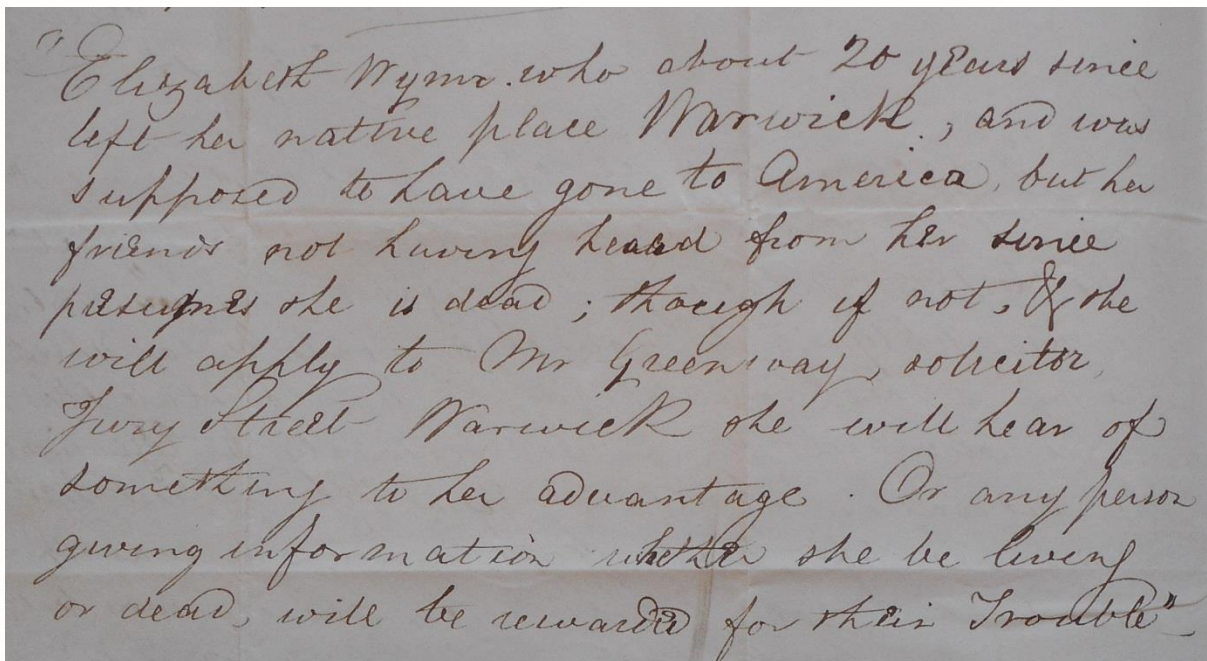 "Elizabeth Wyme. who about 20 years since
left her native place Warwick, and was
supposed to have gone to America, but her
friends not having heard from her since
presumes she is dead; though if not, & she
will apply to Mr Greenway, solicitor,
Jury Street Warwick she will hear of
something to her advantage. Or any person
giving information whether she be living
or dead, will be rewarded for their Trouble"